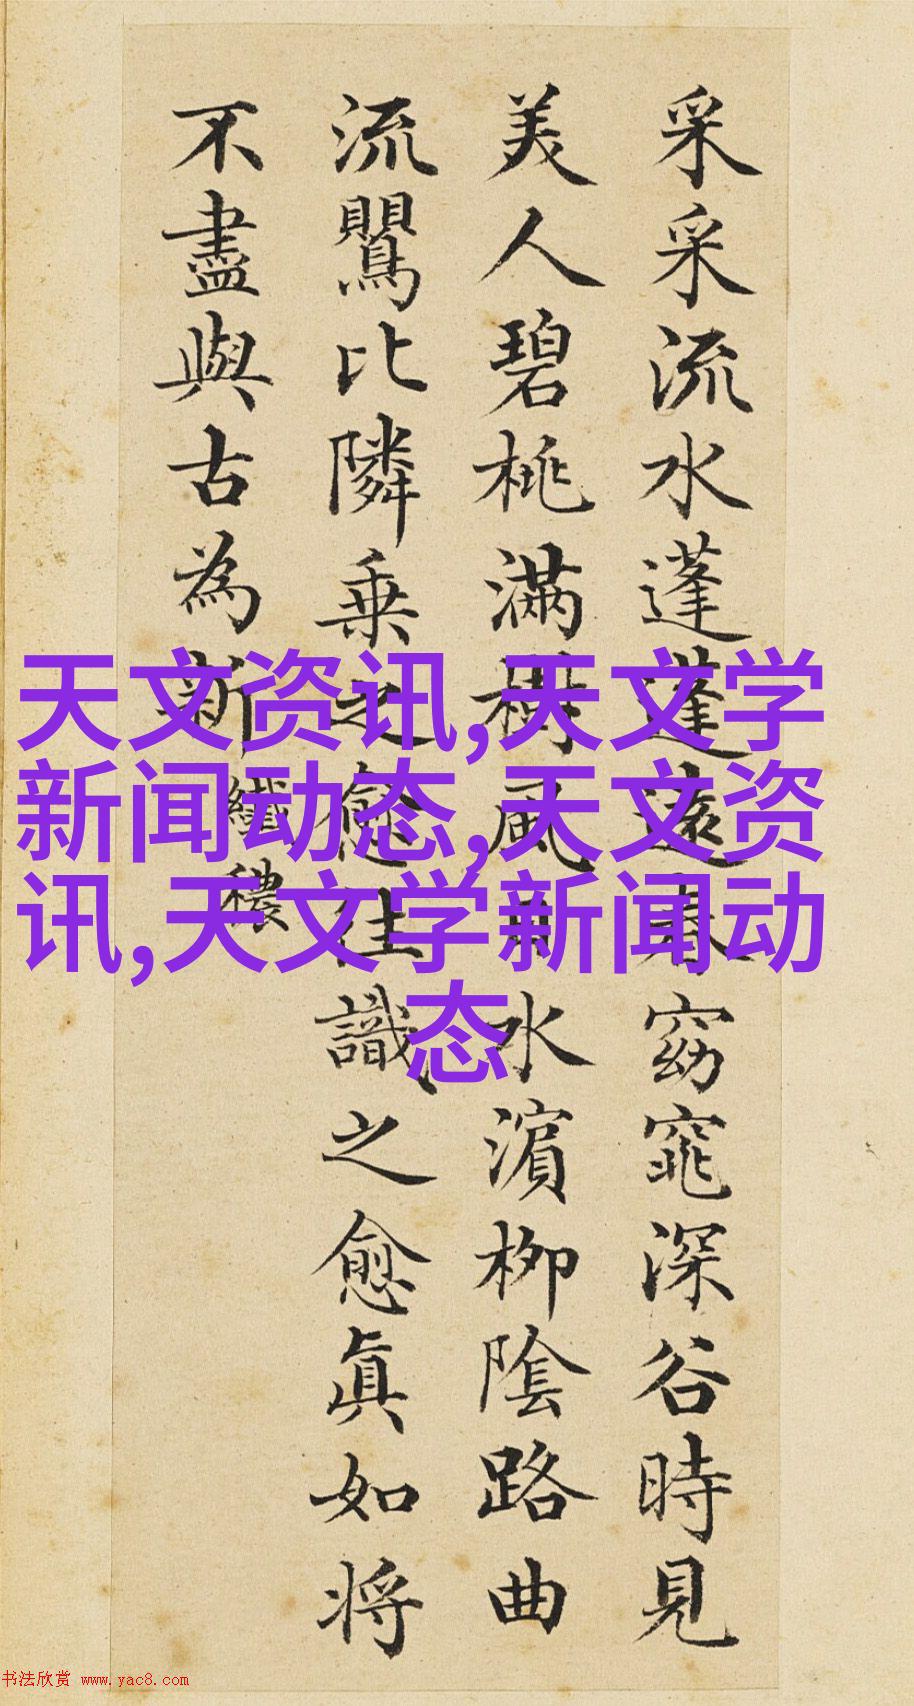 采采流水蓬蓬遠春窈窕深谷時見
美人碧桃滿樹風日水濵柳陰路曲
流鸎比隣乗之愈往識之愈眞如将
不盡與古為新
纖穠
天文资讯,天文学
新闻动态,天文资
讯,天文学新闻动
态
书法欣赏 www.yac8.com